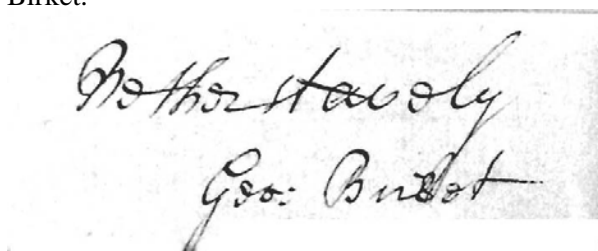 Birket.
Netherstavely
Geo: Birket